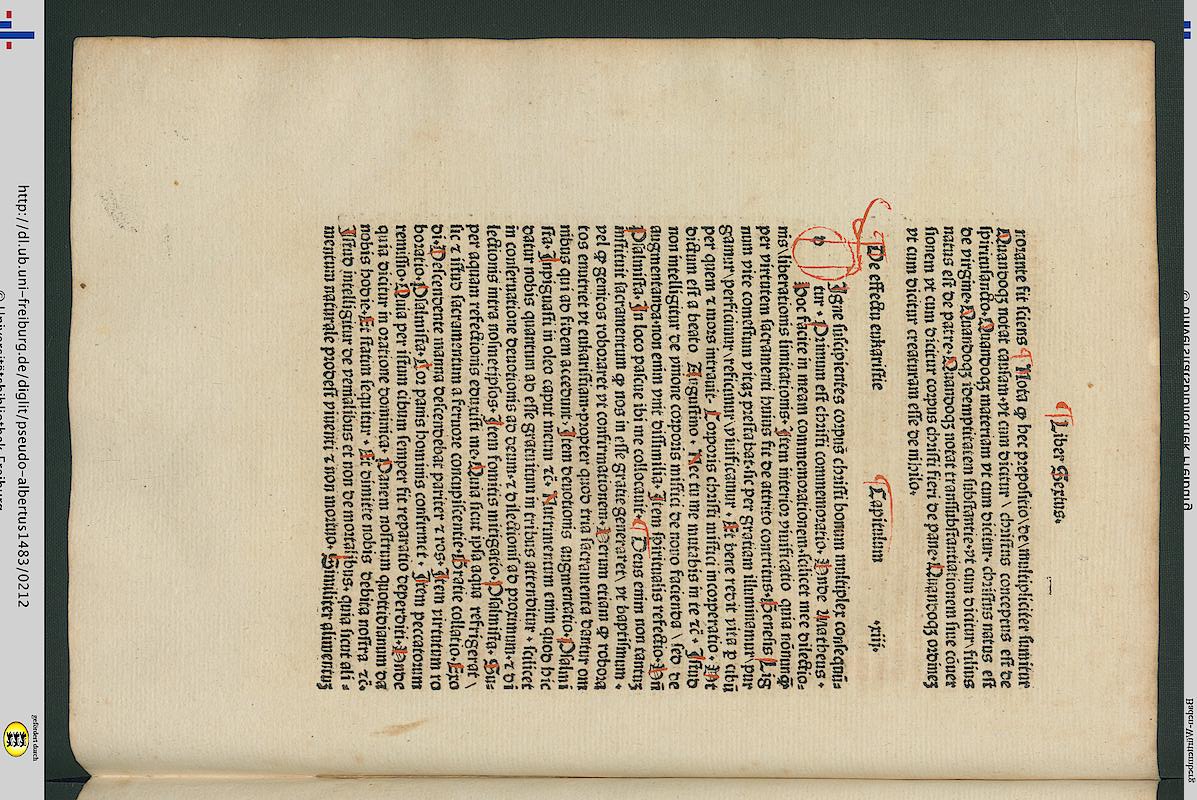 Liber Sextus.
ronante fit sciens Nota ꝙ hec prepositio\de\multipliciter sumitur
Quandoqꝫ notat causam·vt cum dicitur \ christus conceptus est de
spiritusancto·Quandoqꝫ materiam vt cum dicitur· christus natus est
de virgine·Quandoqꝫ idemptitatem substantie·vt cum dicitur\ filius
natus est de patre·Quandoqꝫ notat transsubstantiationem siue cōuer
sionem vt cum dicitur corpus christi fieri de pane·Quandoqꝫ ordinem
vt cum dicitur creaturam esse de nihilo·
De effectu eukaristie Capitulum ·xiij·
Igne suscipientes corpus christi bonum multiplex consequū-
tur · Primum est christi commemoratio· Vnde Matheus ·
hoc facite in meam commemorationem·scilicet mee dilectio-
nis\liberationis\imitationis· Item interior viuificatio quia
per virtutem sacramenti huius fit de attrito contritus·
num vite comestum vitaꝫ prestabat·sic per gratiam illuminamur\pur
gamur\perficimur\reficimur\viuificamur · Et bene redit vita p cibū
per quem z mors intrauit· Corporis christi mistici incorporatio · Vt
dictum est a beato Augustino · Nec tu me mutabis in te zc · Istud
non intelligitur de vnione corporis mistici de nouo facienda \ sed de
augmentanda·non enim vnit dissimilia· Item spiritualis refectio·
Psalmista· In loco pascue ibi me collocauit· Deus enim non tantuꝫ
instituit sacramentum ꝙ nos in esse gratie generaret\ vt baptismum ·
vel ꝙ genitos roboraret vt confirmationem· Verum etiam ꝙ robora
tos enutriet vt eukaristiam·propter quod tria sacramenta dantur om
nibus qui ad fidem accedunt· Item deuotionis augmentatio·Psalmi
sta· Inpiguasti in oleo caput meum zc· Nutrimentum enim quod hic
datur nobis quantum ad esse gratuitum in tribus attenditur · scilicet
in conseruatione deuotionis ad deum·z dilectioni ad proximum·z di
lectionis intra nosmetipsos· Item fomitis mitigatio·Psalmista· Su-
per aquam refectionis eduxit me·Quia sicut ipsa aqua refrigerat\
sic z istud sacramentum a feruore concupiscentie·Gratie collatio·Exo
di·Descendente manna descendebat pariter z ros· Item virtutum ro
boratio·Psalmista·Cor panis hominis confirmet · Item peccatorum
remissio·Quia per istum cibum semper fit reparatio deperditi·Vnde
quia dicitur in oratione dominica·Panem nostrum quottidianum da
nobis hodie·Et statim sequitur · Et dimitte nobis debita nostra zc·
Istud intelligitur de venialibus et non de mortalibus·quia sicut ali-
mentum naturale prodest viuenti z non mortuo· Similiter alimentuꝫ
http://dl.ub.uni-freiburg.de/diglit/pseudo-albertus1483/0212
© Universitätsbibliothek Freiburg
gefördert durch
Baden-Württemberg